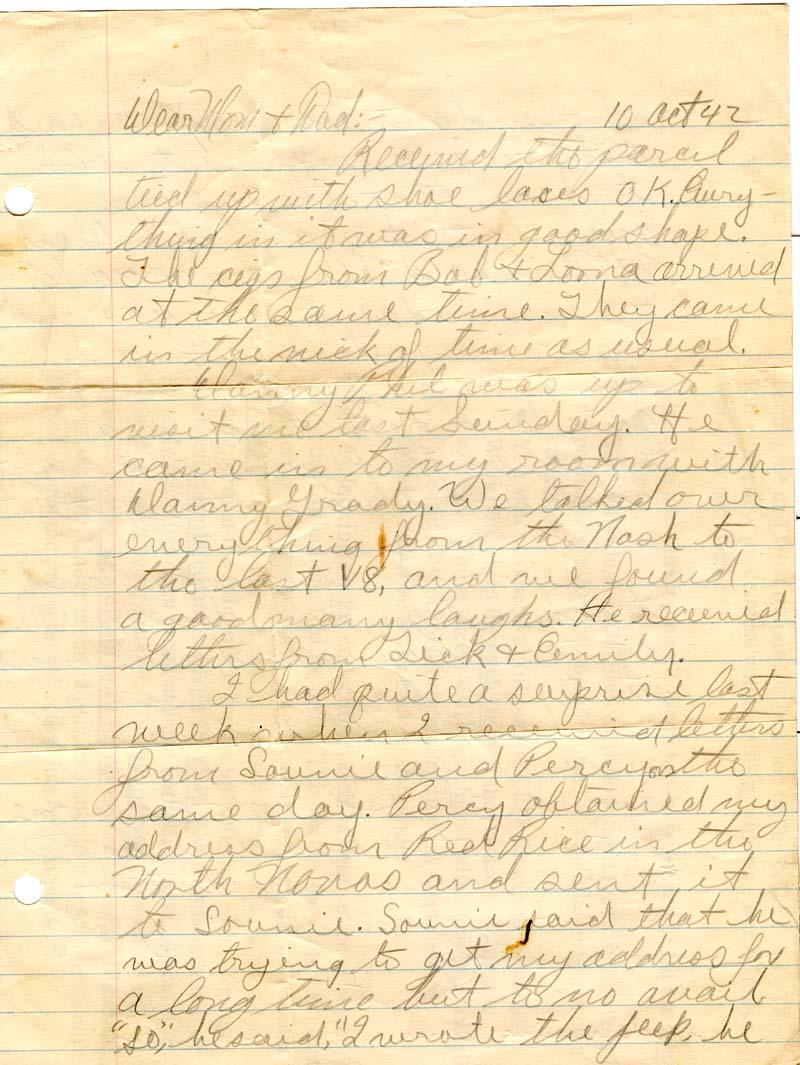 Dear Mom + Dad:- 10 Oct 42
Received the parcel
tied up with shoe laces OK. Every-
thing in it was in good shape.
The cigs from Bob + Lorna arrived
at the same time. They came
in the nick of time as usual.
Danny was up to
visit me last Sunday. He
came in to my room with
Danny Grady. We talked over
everything from the Nash to
the last V8, and we found
a good many laughs. He received
letters from + Emily.
I had quite a surprise last
week when I received letters
from Sounie and Percy on the
same day. Percy obtained my
address from Red Rice in the
North Novas and sent it
to Sounie. Sounie said that he
was trying to get my address for
a long time but to no avail
"so," he said, "I wrote the jeep, he